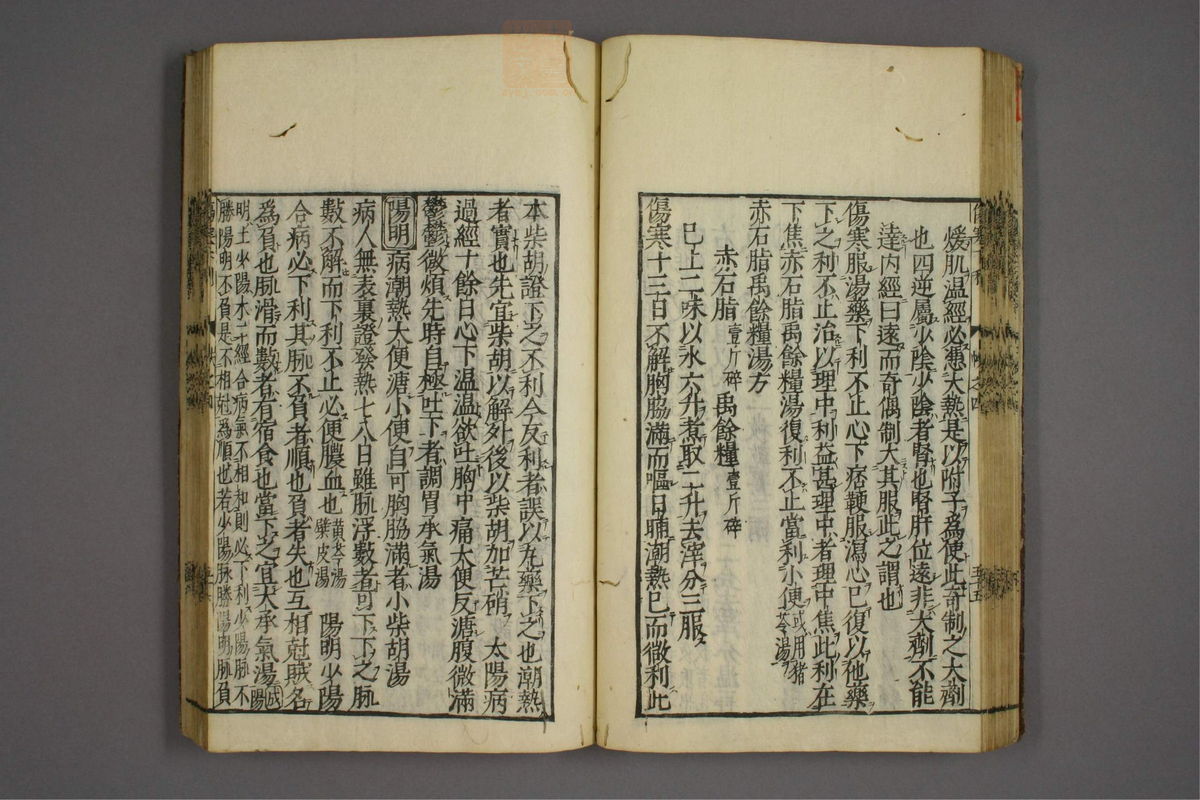 煖肌温經必憑大熱是以附子爲使此奇制之大劑
也四逆屬少陰少陰者腎也腎肝位遠非大劑不能
達内經曰遠而奇偶制大其服此之謂也
傷寒服湯藥下利不止心下痞鞕服瀉心已復以他藥
下之利不止治以理中利益甚理中者理中焦此利在
下焦赤石脂禹餘糧湯復利不止當利小便或用猪苓湯
赤石脂禹餘糧湯方
赤石脂壹斤碎 禹餘糧壹斤碎
已上二味以水六升煮取二升去滓分三服
傷寒十三日不解胸脇滿而嘔日晡潮熱已而微利此
本柴胡證下之不利今反利者誤以丸藥下之也潮熱
者實也先宜柴胡以解外後以柴胡加芒硝 太陽病
過經十餘日心下温温欲吐胸中痛大便反溏腹微滿
鬱鬱微煩先時自極吐下者調胃承氣湯
陽明 病潮熱大便溏小便自可胸脇滿者小柴胡湯
病人無表裏證發熱七八日雖脉浮數者可下下之脉
數不解而下利不止必便膿血也黄芩湯蘗皮湯 陽明少陽
合病必下利其脉不負者順也負者失也互相尅賊名
爲負也脉滑而數者有宿食也當下之宜大承氣湯成陽
明土少陽木二經合病氣不相和則必下利少陽脉不
勝陽明不負是不相尅爲順也若少陽脉勝陽明脉負